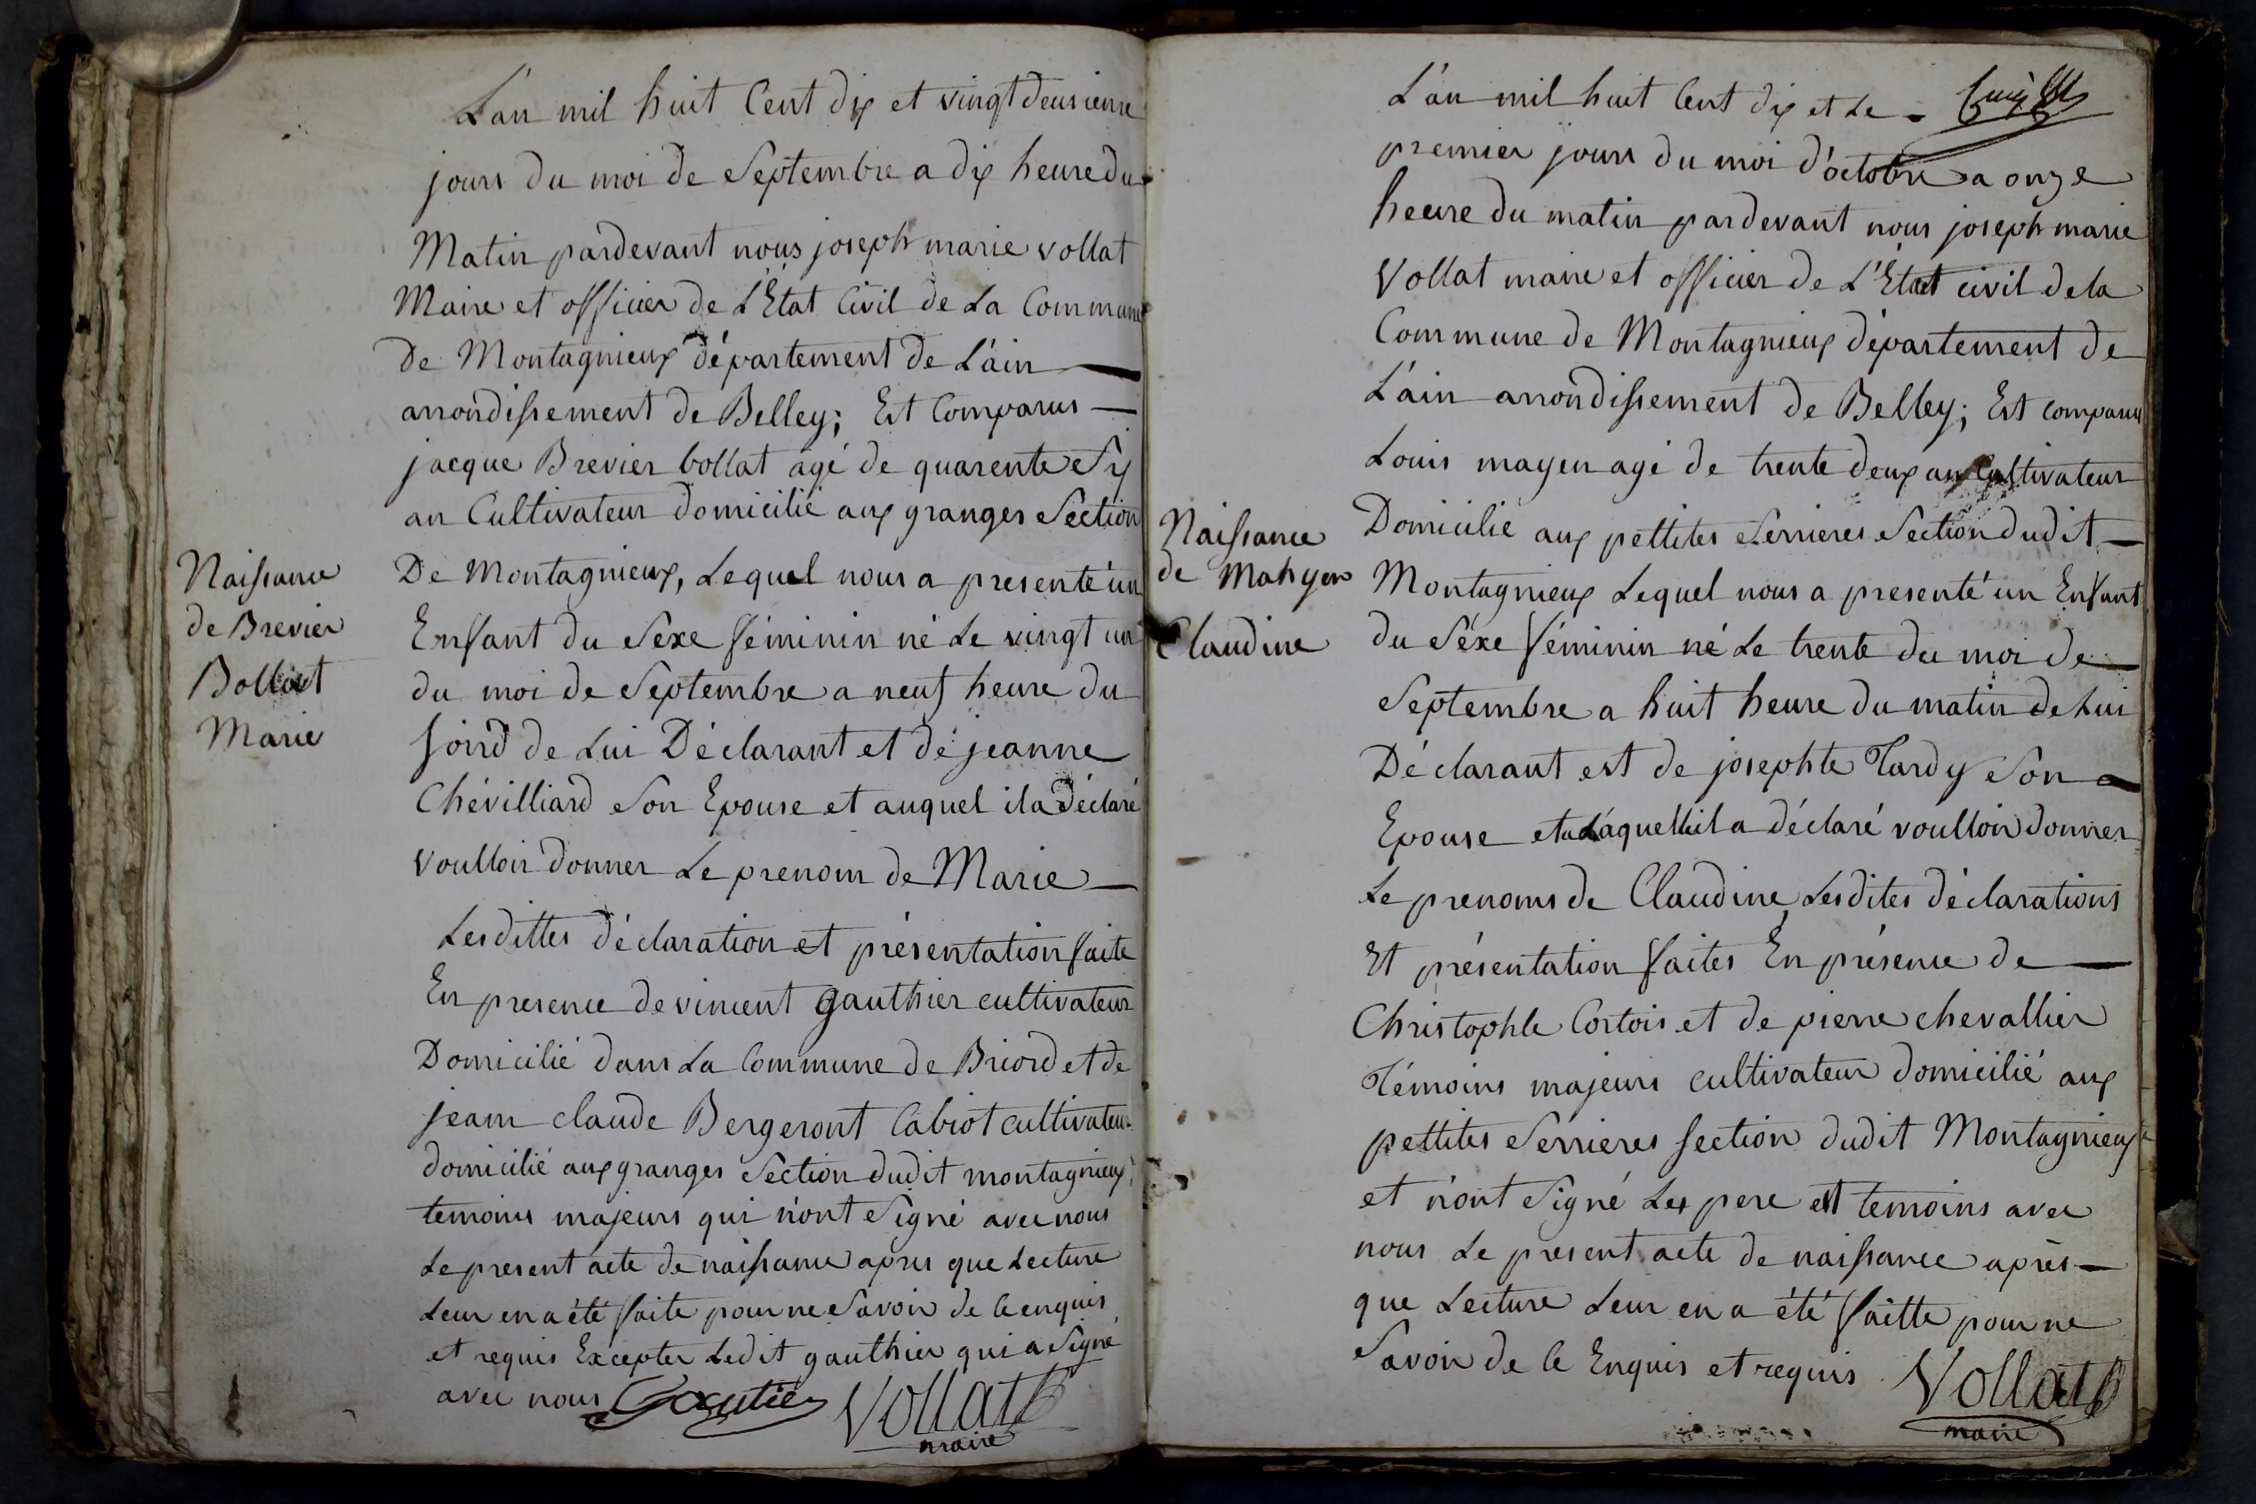 L'an mil huit Cent dix et vingt deusieme
jours du moi de Septembre a dix heure du
Matin pardevant nous joseph marie vollat
Maire et officier de L'Etat Civil de La Commune
De Montagnieux département de L'ain
arrondissement de Belley; Est Comparus
jacque Brevier bollat agé de quarente Six
an Cultivateur domicilié aux granges Section
Naissance
de Brevier
Bolliat
Marie
De Montagnieux, Lequel nous a presenté un
Enfant du Sexe féminin né Le vingt un
du moi de Septembre a neuf heure du
soird de Lui Déclarant et de jeanne
Chévilliard Son Epouse et auquel il a déclaré
voulloir donner Le prenom de Marie
Lesdittes déclaration et présentation faite
En presence de vincent gauthier cultivateur
Domicilié dans La Commune de Briord et de
jean claude Bergeront Cabiot cultivateur
domicilié aux granges Section dudit montagnieux
temoins majeurs qui n'ont Signé avec nous
Le present acte de naissance apres que Lecture
Leur en a été faite pour ne Savoir de Ce enquis
et requis Excepter Ledit gauthier qui a Signé
avec nous Gautier Vollat
maire
L'an mil huit Cent dix et Le
premier jours du moi d'octobre a onze
heure du matin pardevant nous joseph marie
Vollat maire et officier de L'Etat civil de la
Commune de Montagnieux département de
L'ain arrondissement de Belley; Est comparu
Louis mayen agé de trente deux an Cultivateur
Naissance
de Mahyen
Claudine
Domicilié aux pettites Serrieres Section dudit
Montagnieux Lequel nous a presenté un Enfant
du Séxe féminin né Le trente du moi de
Septembre a huit heure du matin de Lui
Déclarant est de josephte Tardy Son
Epouse et a Laquelle il a déclaré voulloir donner
Le prenoms de Claudine, Lesdites déclarations
Et présentation faites En présence de
Christophle Cortois et de pierre chevallier
Témoins majeurs cultivateur domicilié aux
pettites Serrieres section dudit Montagnieux
et n'ont Signé Les pere et temoins avec
nous Le present acte de naissance après
que Lecture Leur en a été faitte pour ne
Savoir de Ce Enquis et requis Vollat
maire